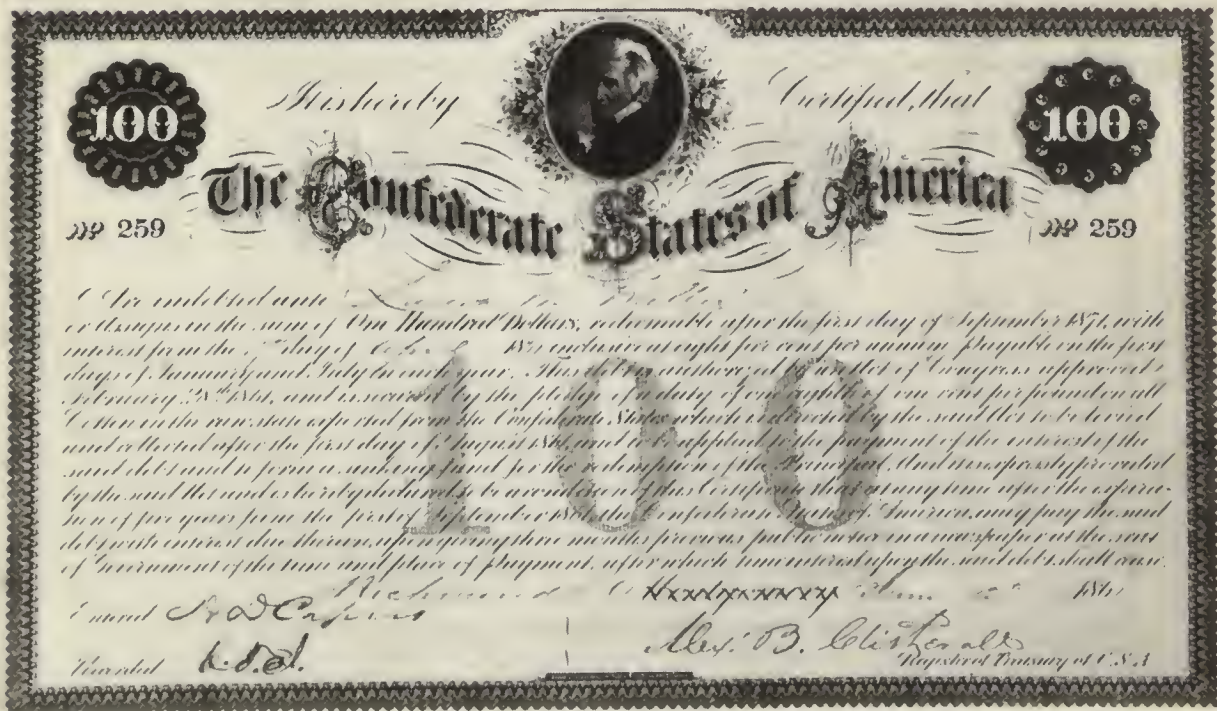 It is hereby Certified, that
100 100
The Confederate States of America
No 259 No 259
Are indebted unto
or Assigns in the sum of One Hundred Dollars, redeemable after the first day of September 1871, with
interest from the day of 1861 inclusive at eight per cent per annum payable on the first
days of January and July in each year. This debt is authorized by an Act of Congress approved
February 28th 1861, and is secured by the pledge of a duty of one eighth of one cent per pound on all
Cotton in the raw state exported from the Confederate States which is directed by the said Act to be levied
and collected after the first day of August 1861, and to be applied to the payment of the interest of the
said debt and to form a sinking fund for the redemption of the Principal. And it is expressly provided
by the said Act and is hereby declared to be a condition of this Certificate that at any time after the expira-
tion of five years from the first of September 1861 the Confederate States of America, may pay the said
debt with interest due thereon, upon giving three months previous public notice in a newspaper at the seat
of Government of the time and place of payment, after which time interest upon the said debt shall cease.
100
Richmond 1861
Entered
Alex: B. Clitherall
Recorded Register of Treasury of C.S.A